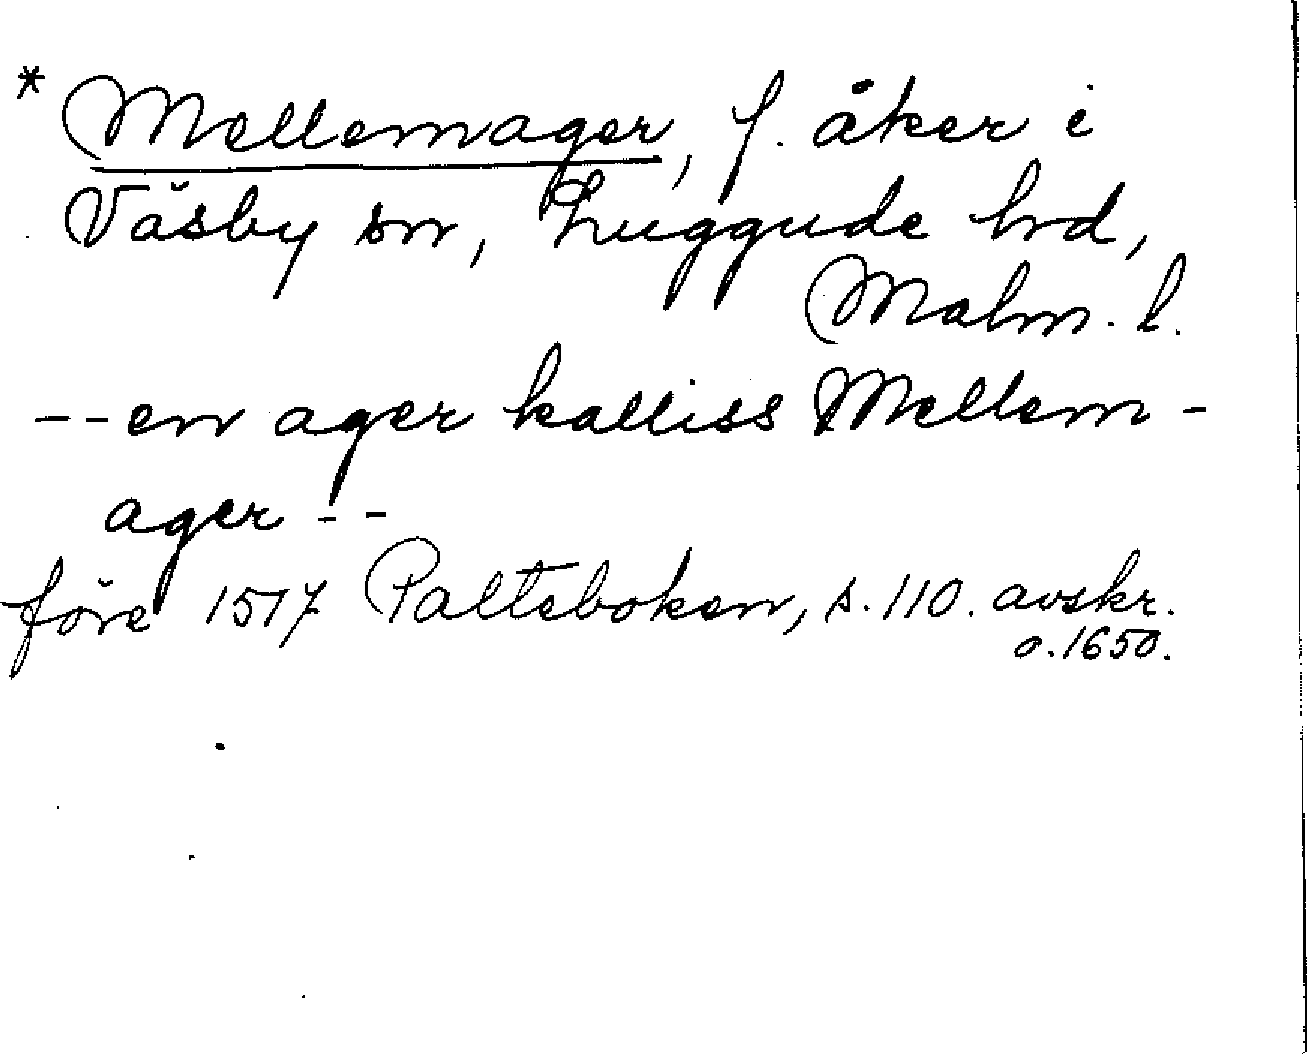 * Mellemager, f. åker i
Väsby sn, Luggude hrd,
Malm. l.
-- en ager kalliss Mellem-
ager --
före 1517 Palteboken, s. 110. avskr.
o. 1650.